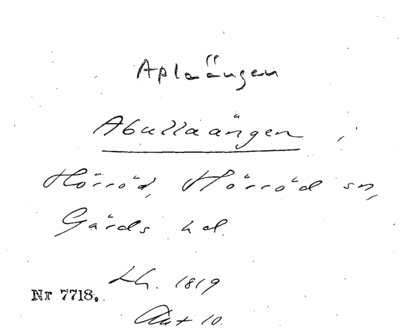 Aplaängen
Abullaängen,
Hörröd, Hörröd sn,
Gärds hd.
Lh. 1819
Nr 7718.
Akt 10.